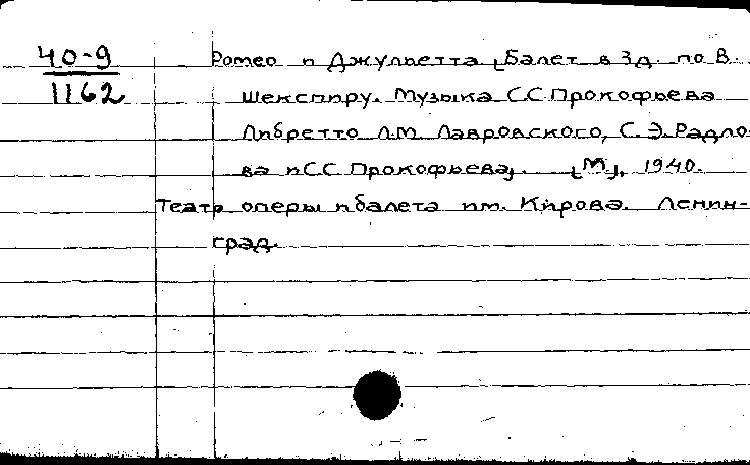 40-9
1162
Ромео и Джульетта [Балет в 3 д. по В.
Шекспиру. Музыка С.С. Прокофьева
Либретто Л.М. Лавровского, С.Э. Радло-
ва и С.С. Прокофьева]. [М], 1940.
Театр оперы и балета им. Кирова. Ленин-
град.